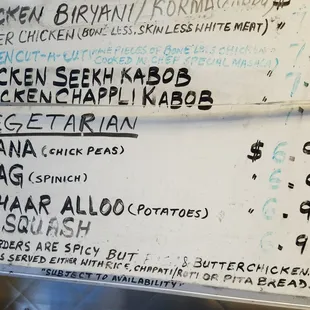 CKEN BIRYANI/KORMA
ER CHICKEN (BONELESS, SKINLESS WHITE MEAT) " 7
EN CUT-A-CUT (FINE PIECES OF BONELESS CHICKEN
COOKED IN CHEF SPECIAL MASALA) 7
CKEN SEEKH KABOB
CKEN CHAPPLI KABOB
EGETARIAN
ANA (CHICK PEAS) $ 6.9
AG (SPINICH) " 6.9
HAAR ALLOO (POTATOES) " 6.9
SQUASH 6.9
RDERS ARE SPICY BUT & BUTTERCHICKEN.
S SERVED EITHER WITH RICE, CHAPATI/ROTI OR PITA BREAD.
"SUBJECT TO AVAILABILITY"